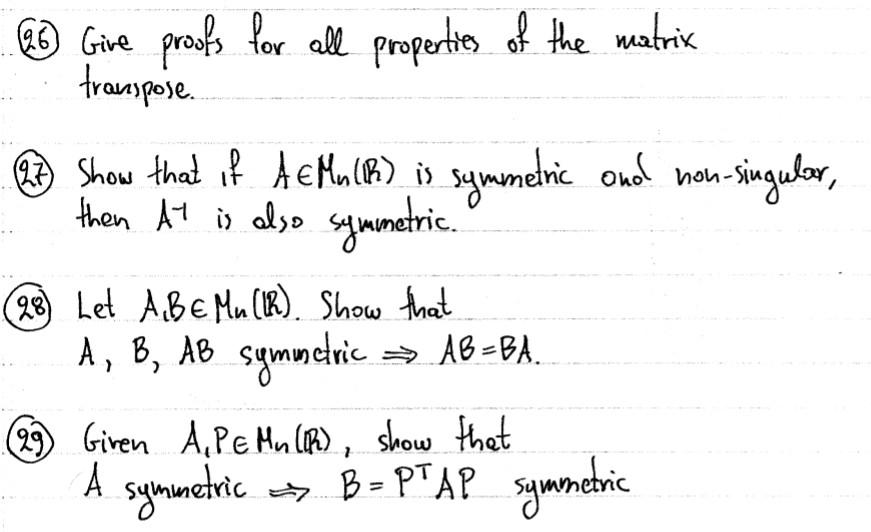 (26) Give proofs for all properties of the matrix
transpose.
(27) Show that if A∈Mn(ℝ) is symmetric and non-singular,
then A⁻¹ is also symmetric.
(28) Let A,B∈Mn(ℝ). Show that
A, B, AB symmetric ⇒ AB=BA.
(29) Given A,P∈Mn(ℝ), show that
A symmetric ⇒ B = PᵀAP symmetric